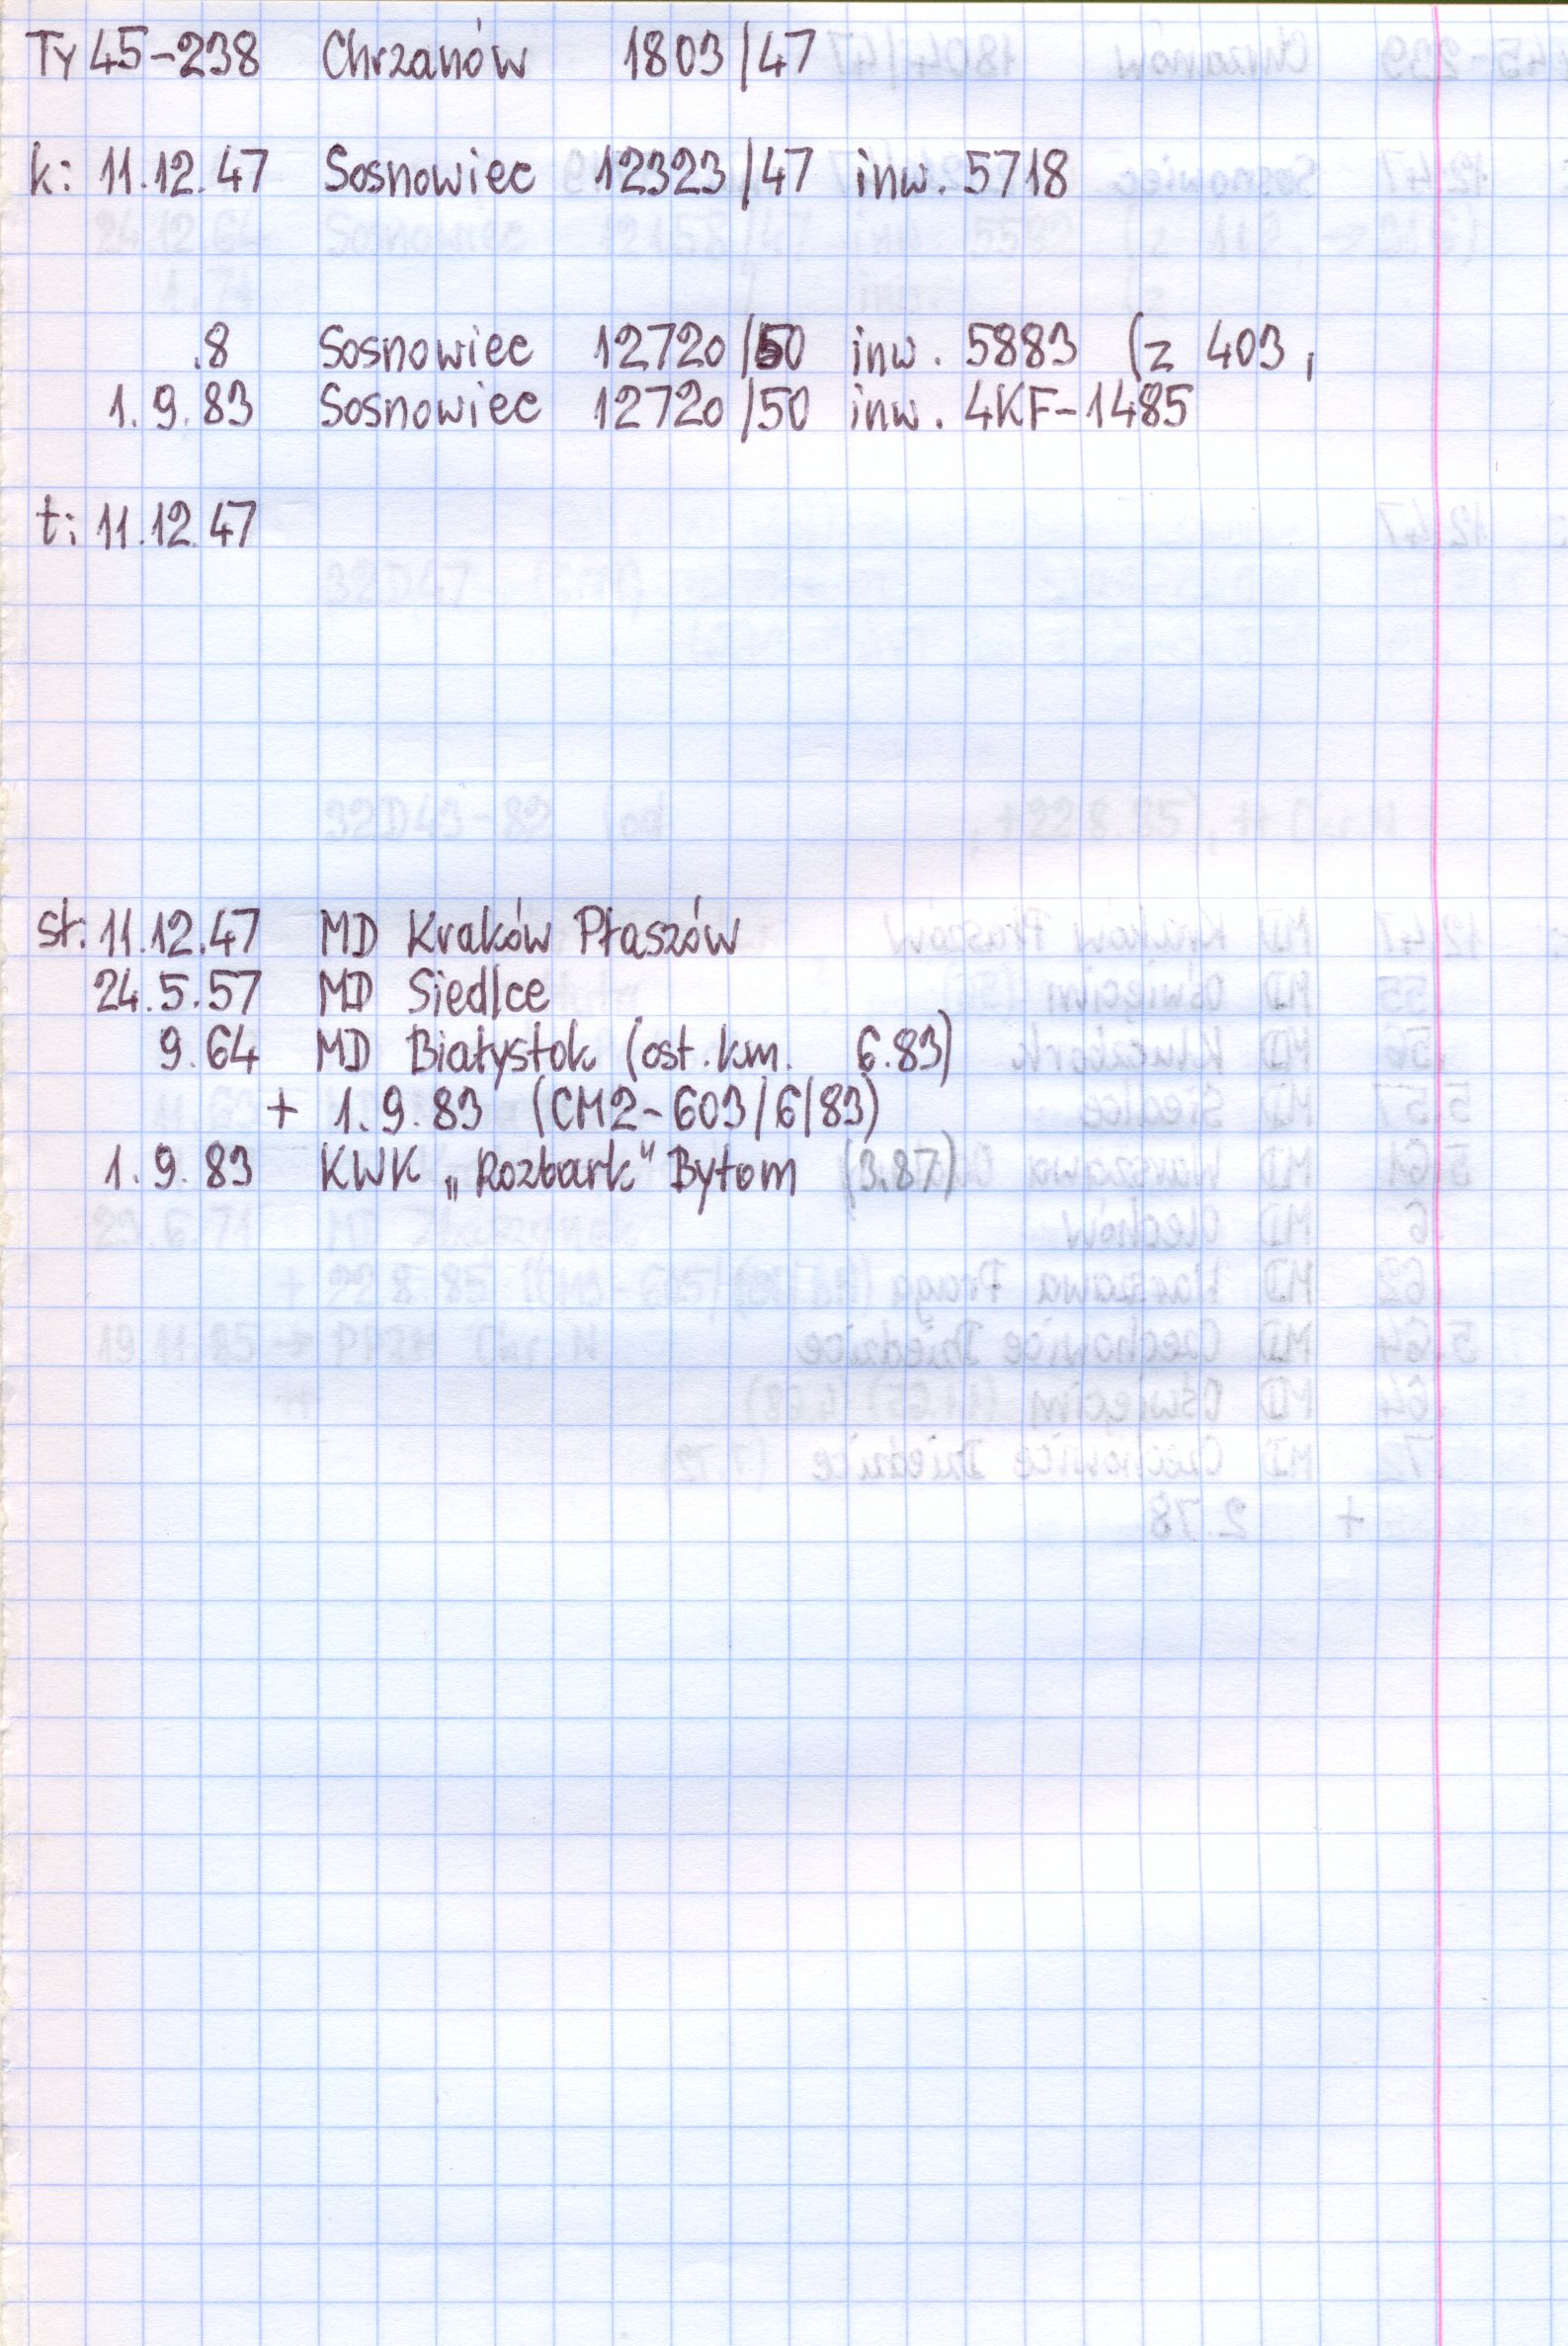 Ty 45-238 Chrzanów 1803/47
k: 11.12.47 Sosnowiec 12323/47 inw. 5718
.8 Sosnowiec 12720/50 inw. 5883 (z 403,
1.9.83 Sosnowiec 12720/50 inw. 4KF-1485
t: 11.12.47
st: 11.12.47 MD Kraków Płaszów
24.5.57 MD Siedlce
9.64 MD Białystok (ost. km. 6.83)
+ 1.9.83 (CM2-603/6/83)
1.9.83 KWK „Rozbark" Bytom (3.87)